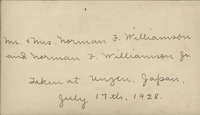 Mr. & Mrs. Norman F. Williamson
and Norman F. Williamson Jr.
Taken at Unzen, Japan,
July 17th, 1928.